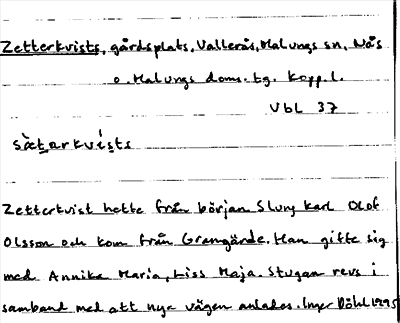 Zetterkvists, gårdsplats, Vallerås, Malungs sn, Nås
o. Malungs doms. tg. Kopp. l.
Vbl 37
sæ̀tərkvís̩ts
Zetterkvist hette från början Slung Karl Olof
Olsson och kom från Grangärde. Han gifte sig
med Annika Maria, Liss Maja. Stugan revs i
samband med att nya vägen anlades. Inger Döhl 1995